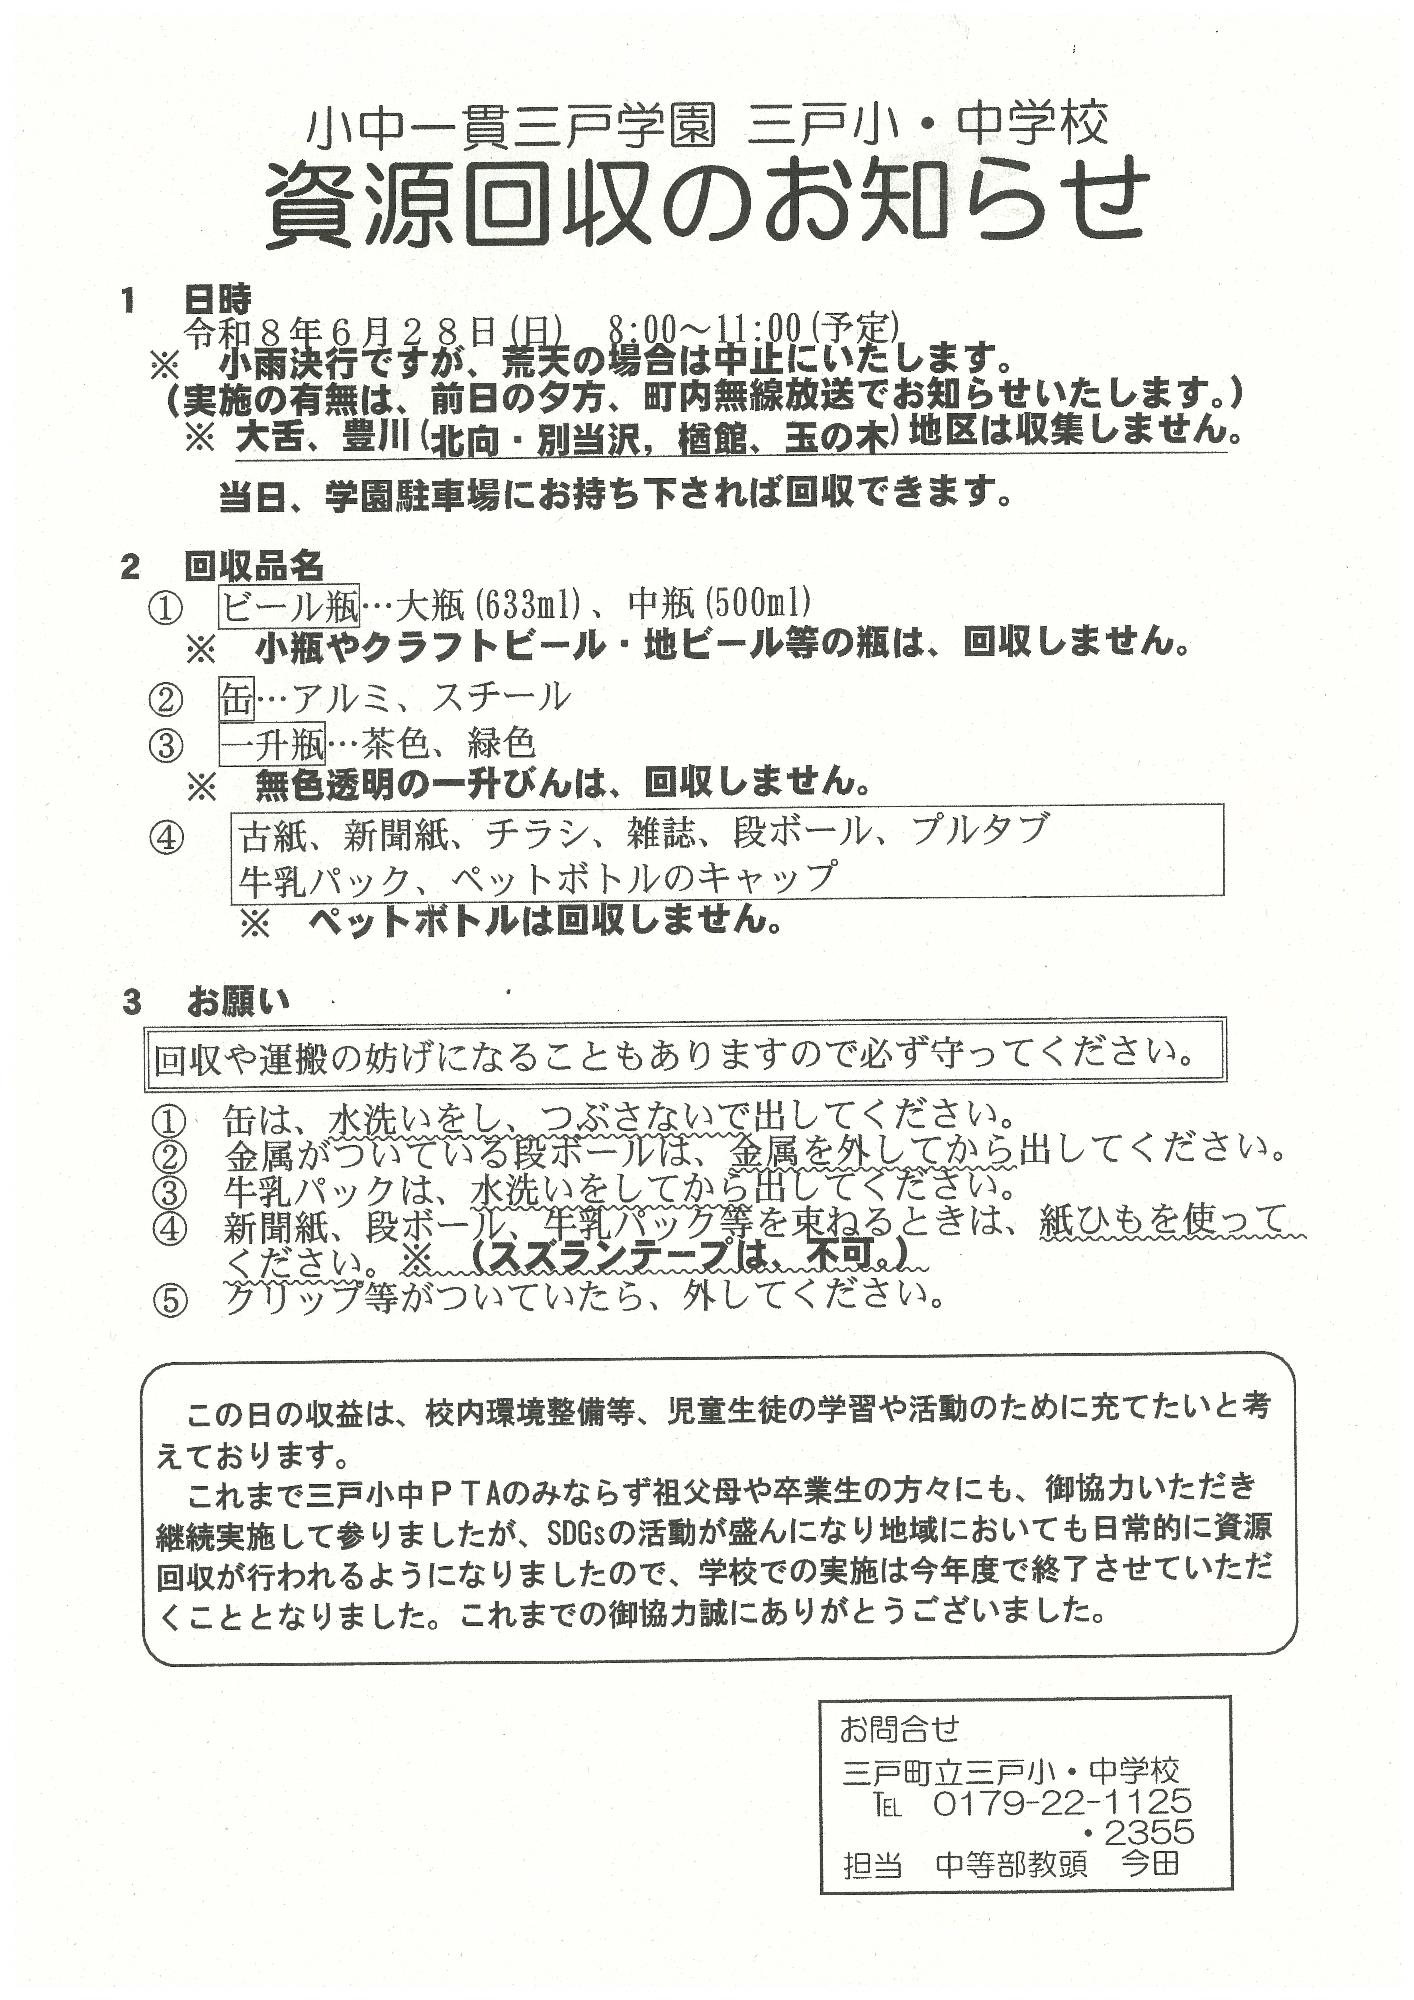 小中一貫三戸学園 三戸小・中学校
資源回収のお知らせ
1 日時
令和８年６月２８日(日) 8:00～11:00(予定)
※ 小雨決行ですが、荒天の場合は中止にいたします。
(実施の有無は、前日の夕方、町内無線放送でお知らせいたします。)
※ 大舌、豊川(北向・別当沢，楢館、玉の木)地区は収集しません。
当日、学園駐車場にお持ち下されば回収できます。
2 回収品名
① ビール瓶…大瓶(633ml)、中瓶(500ml)
※ 小瓶やクラフトビール・地ビール等の瓶は、回収しません。
② 缶…アルミ、スチール
③ 一升瓶…茶色、緑色
※ 無色透明の一升びんは、回収しません。
④ 古紙、新聞紙、チラシ、雑誌、段ボール、プルタブ
牛乳パック、ペットボトルのキャップ
※ ペットボトルは回収しません。
3 お願い
回収や運搬の妨げになることもありますので必ず守ってください。
① 缶は、水洗いをし、つぶさないで出してください。
② 金属がついている段ボールは、金属を外してから出してください。
③ 牛乳パックは、水洗いをしてから出してください。
④ 新聞紙、段ボール、牛乳パック等を束ねるときは、紙ひもを使って
ください。※ (スズランテープは、不可。)
⑤ クリップ等がついていたら、外してください。
この日の収益は、校内環境整備等、児童生徒の学習や活動のために充てたいと考
えております。
これまで三戸小中ＰＴAのみならず祖父母や卒業生の方々にも、御協力いただき
継続実施して参りましたが、SDGsの活動が盛んになり地域においても日常的に資源
回収が行われるようになりましたので、学校での実施は今年度で終了させていただ
くこととなりました。これまでの御協力誠にありがとうございました。
お問合せ
三戸町立三戸小・中学校
℡ 0179-22-1125
・2355
担当 中等部教頭 今田